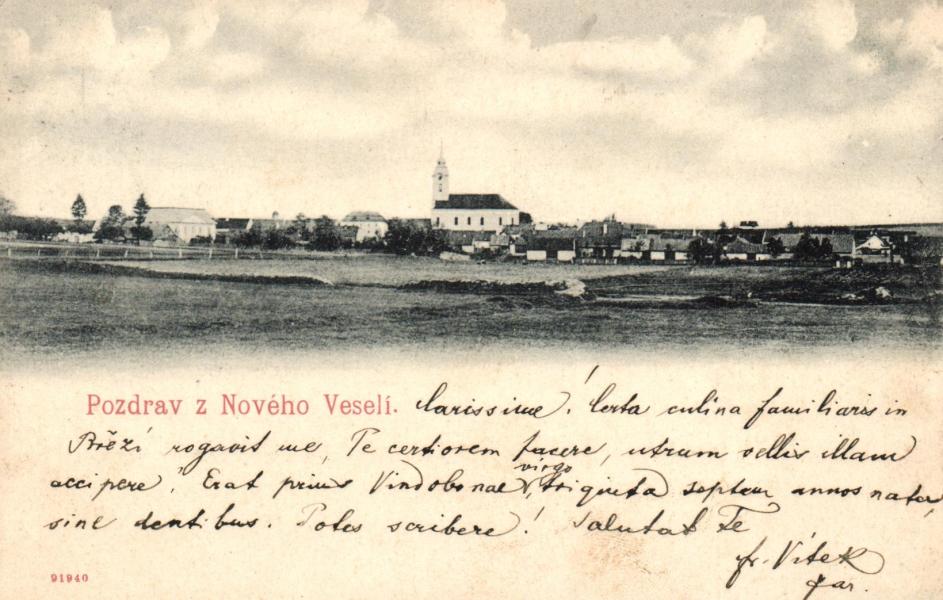 Pozdrav z Nového Veselí. Clarissime! Certa culina familiaris in
Březí rogavit me, Te certiorem facere, utrum vellis illam
accipere! Erat prius Vindobonae, virgo, triginta septem annos nata,
sine dentibus. Potes scribere! Salutat Te
fr. Vítek
far.
91940